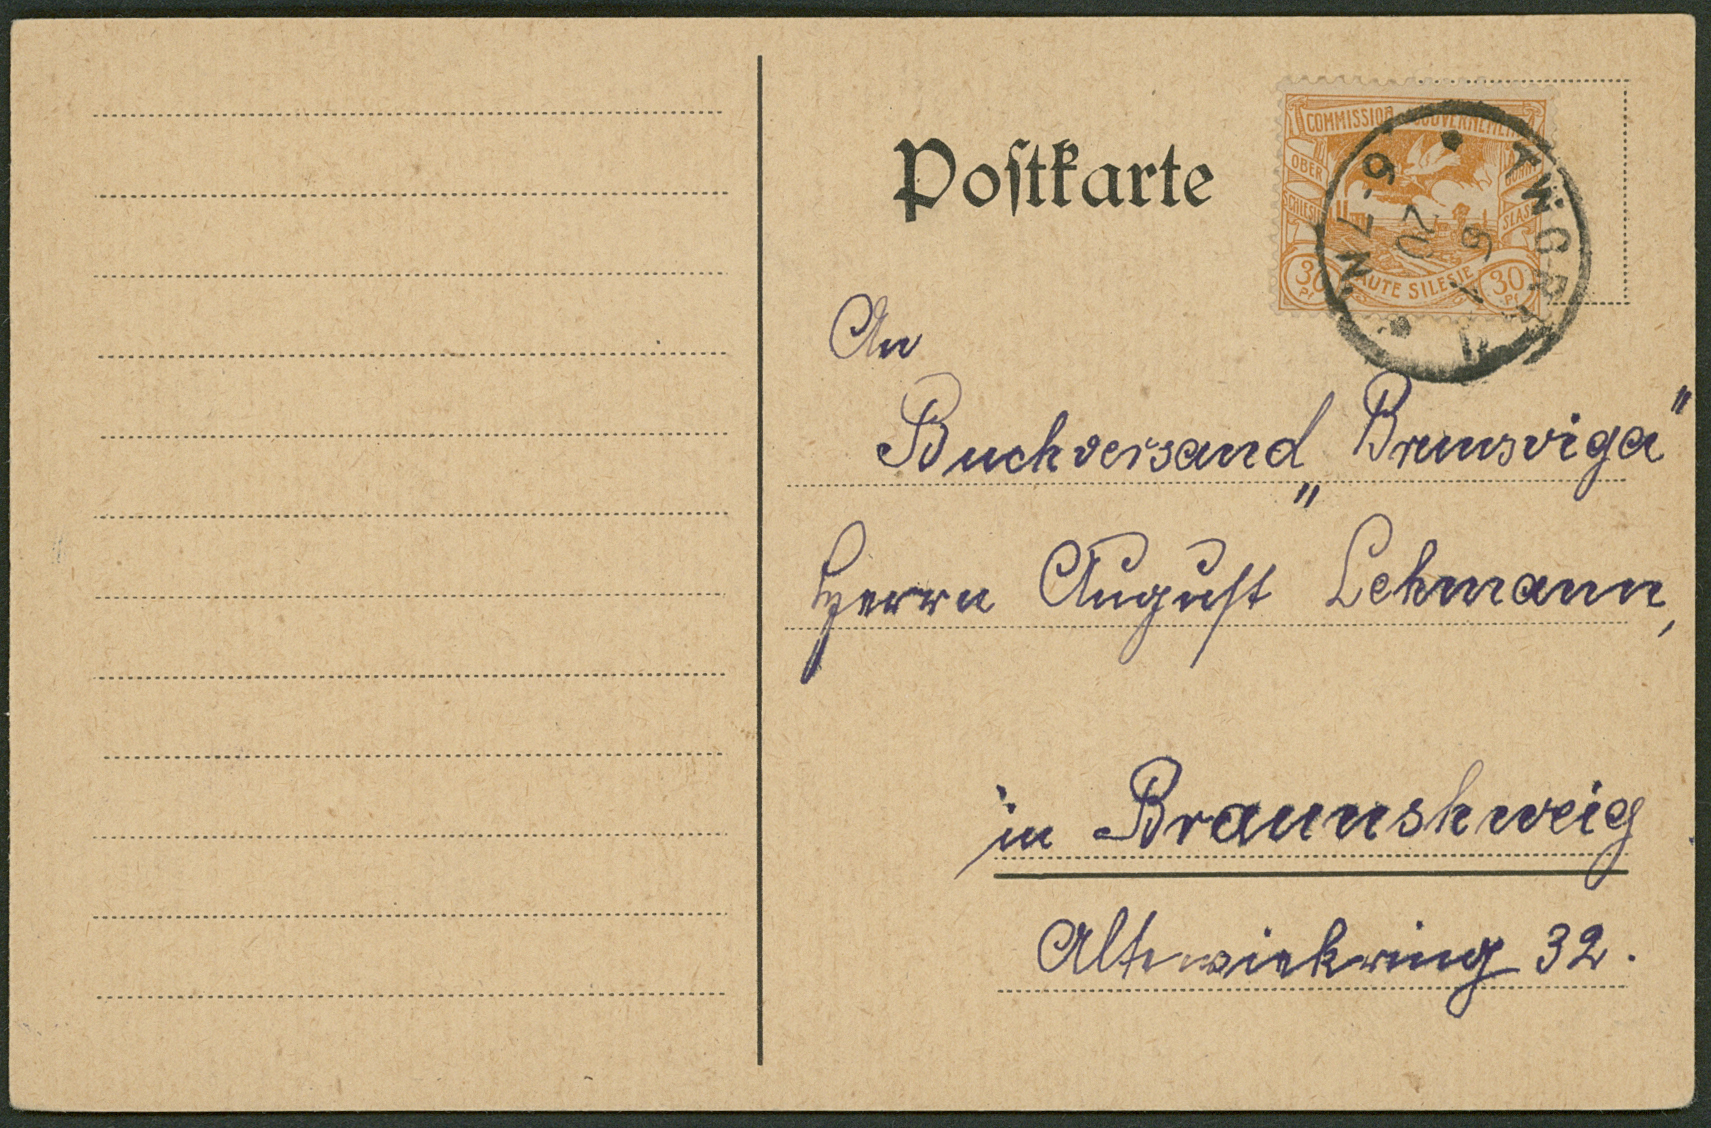 Postkarte
COMMISSION GOUVERNEMENT
OBER
SCHLESI
SLĄSK
HAUTE SILESIE
30 Pf
30 Pf
6-7N
20
An
Buchversand „Brunsviga"
Herrn August Lehmann,
in Braunshweig
Altewiekring 32.